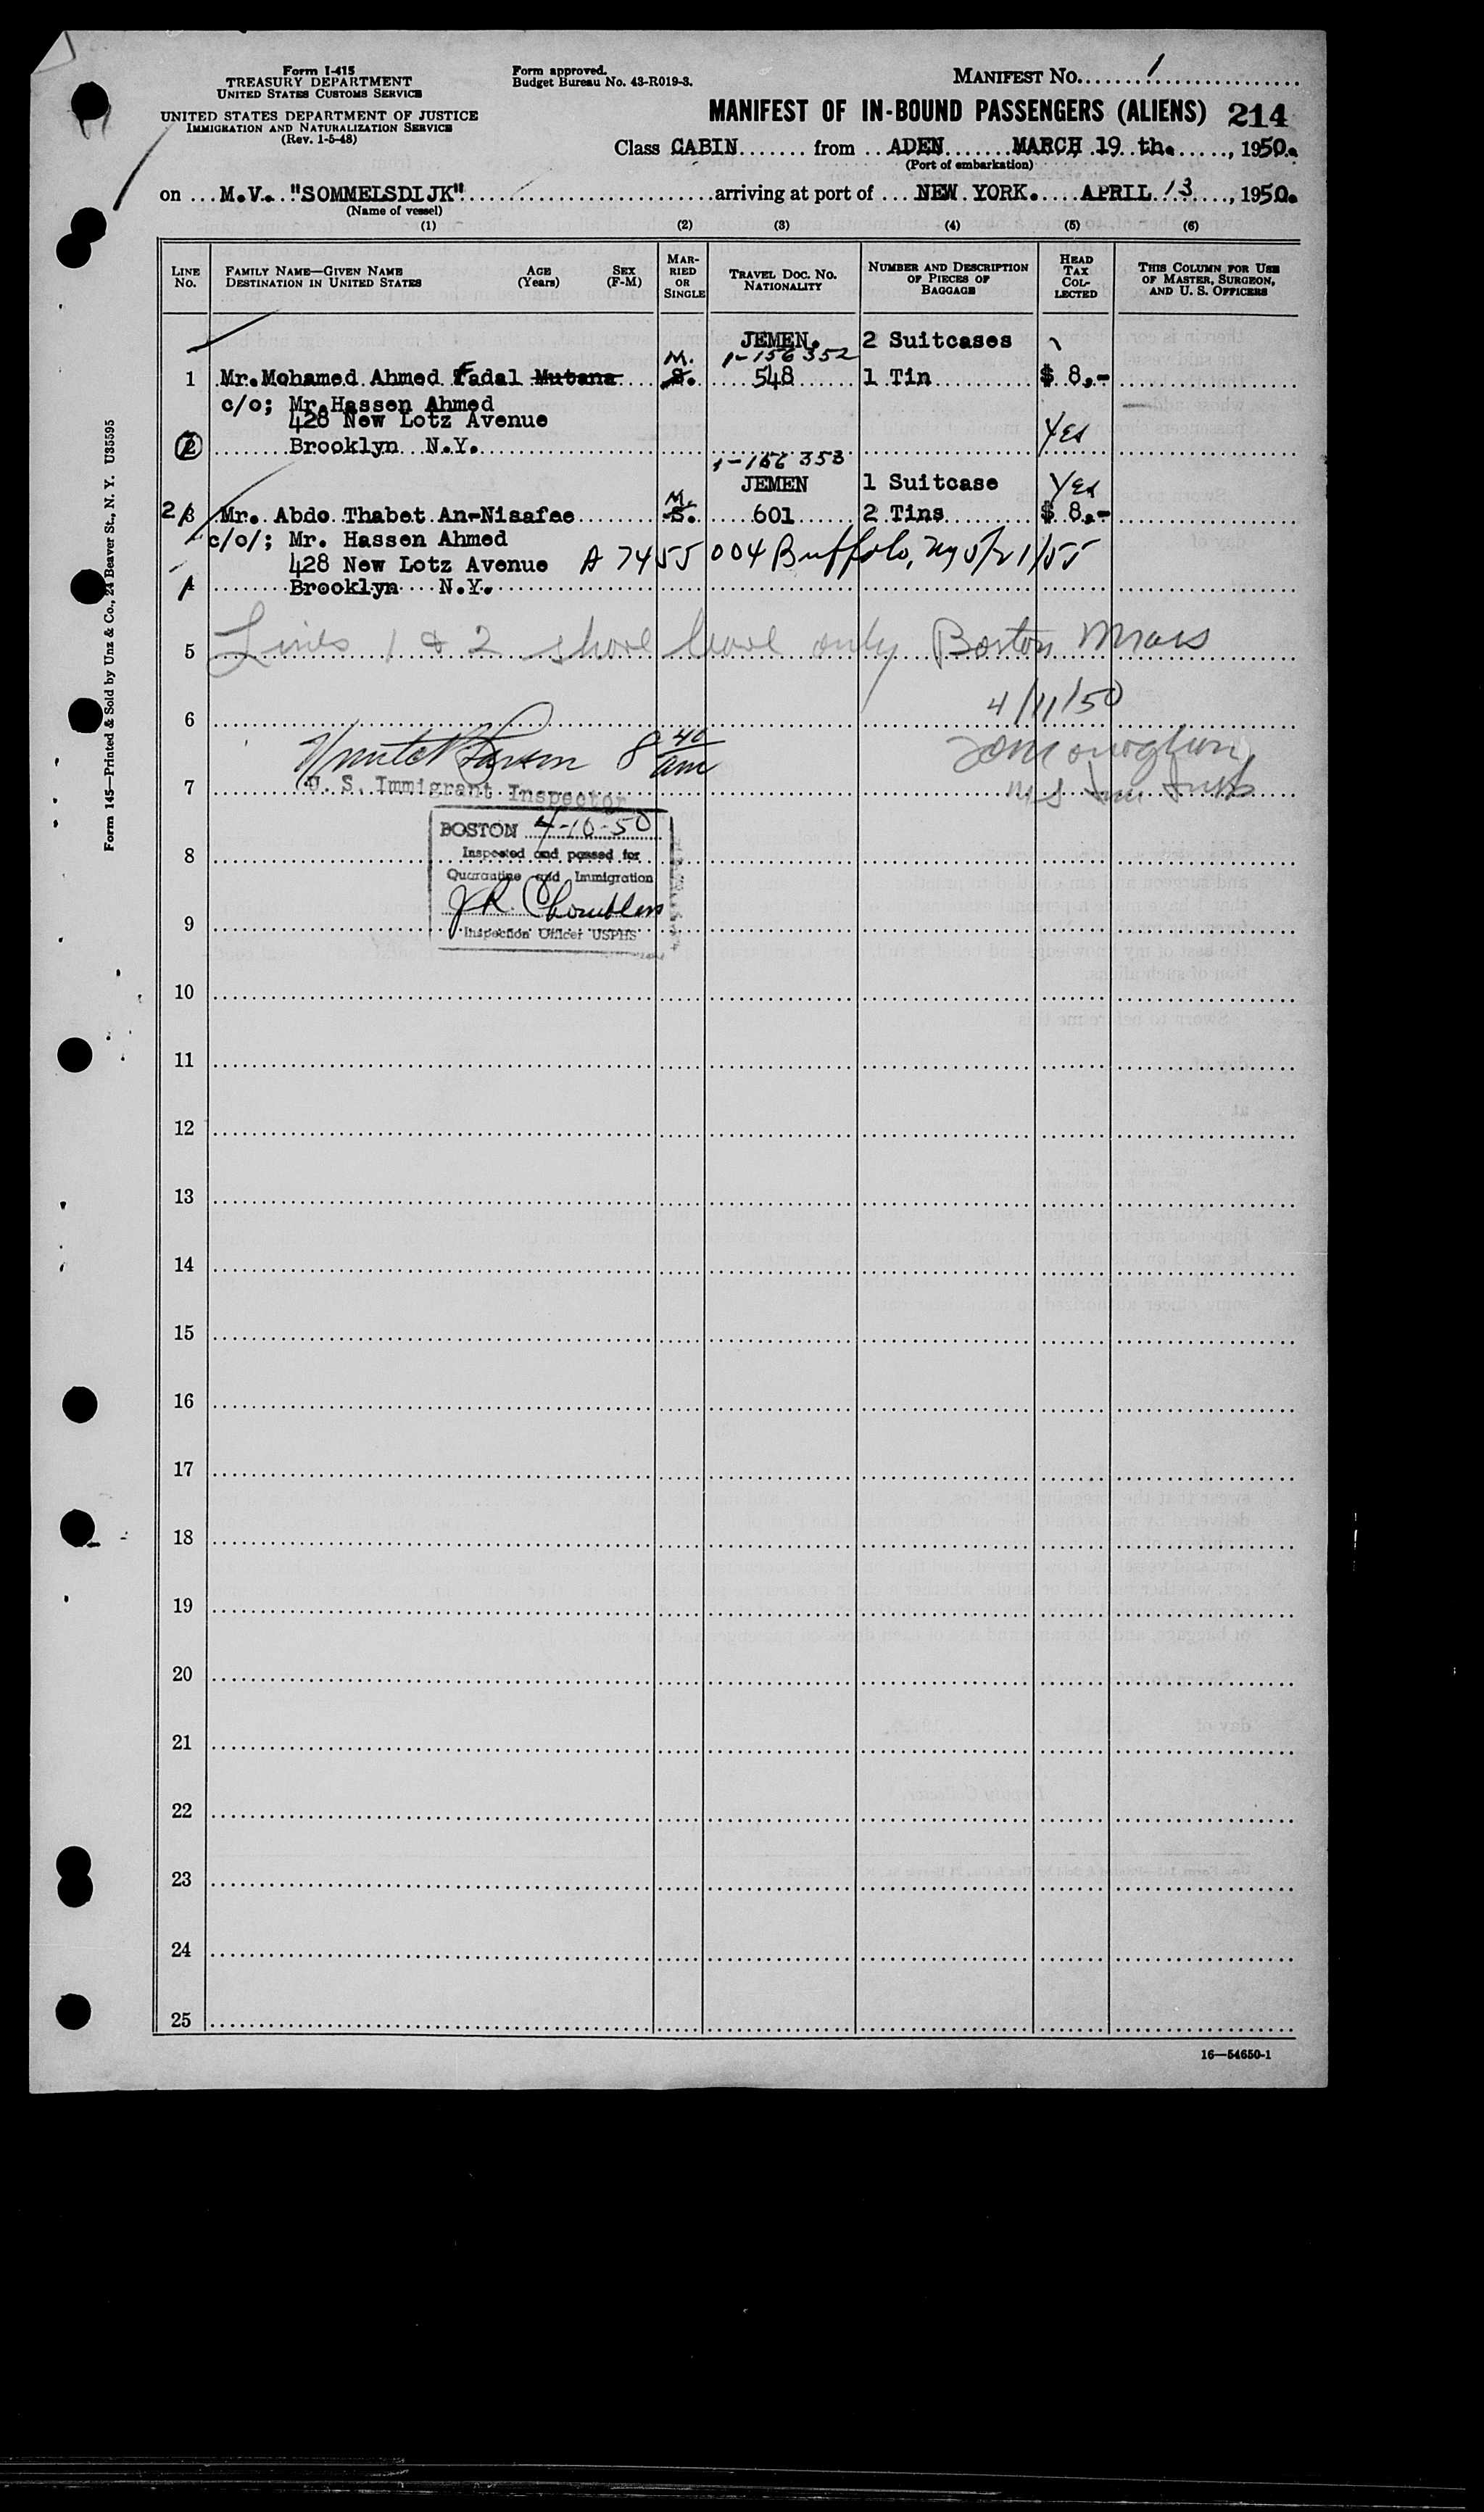 Form I-415
TREASURY DEPARTMENT
UNITED STATES CUSTOMS SERVICE
UNITED STATES DEPARTMENT OF JUSTICE
IMMIGRATION AND NATURALIZATION SERVICE
(Rev. 1-5-48)
Form approved.
Budget Bureau No. 43-R019-3.
MANIFEST No. 1
MANIFEST OF IN-BOUND PASSENGERS (ALIENS) 214
Class CABIN from ADEN MARCH 19 th., 1950.
(Port of embarkation)
on M.V. "SOMMELSDIJK" arriving at port of NEW YORK. APRIL 13, 1950.
(Name of vessel)
(1) (2) (3) (4) (5) (6)
LINE No.
FAMILY NAME—GIVEN NAME
DESTINATION IN UNITED STATES
AGE (Years)
SEX (F-M)
MARRIED OR SINGLE
TRAVEL DOC. NO.
NATIONALITY
NUMBER AND DESCRIPTION OF PIECES OF BAGGAGE
HEAD TAX COLLECTED
THIS COLUMN FOR USE OF MASTER, SURGEON, AND U. S. OFFICERS
JEMEN. 2 Suitcases
M. 1-156352
1 Mr. Mohamed Ahmed Fadal Mutana S. 548 1 Tin $ 8,-
c/o; Mr. Hassen Ahmed
428 New Lotz Avenue
2 Brooklyn N.Y. Yes
1-156 353
JEMEN 1 Suitcase Yes
M.
2 3 Mr. Abdo Thabet An-Nisafee S. 601 2 Tins $ 8,-
c/o/; Mr. Hassen Ahmed
428 New Lotz Avenue A 7455 004 Buffalo, NY 5/21/55
4 Brooklyn N.Y.
5 Lines 1 & 2 shore leave only Boston Mass
6 4/11/50
8 40 am
7 U. S. Immigrant Inspector
BOSTON 4-10-50
8 Inspected and passed for
Quarantine and Immigration
9 Inspection Officer USPHS
10
11
12
13
14
15
16
17
18
19
20
21
22
23
24
25
16—54650-1
Form 145—Printed & Sold by Unz & Co., 24 Beaver St., N. Y. U35595